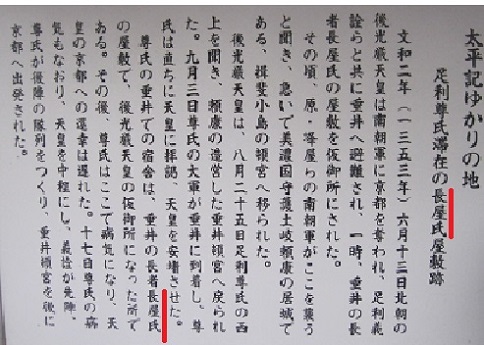 太平記ゆかりの地
足利尊氏滞在の長屋氏屋敷跡
文和二年（一三五三年）六月十三日北朝の
後光厳天皇は南朝軍に京都を奪われ、足利義
詮らと共に垂井へ避難され、一時、垂井の長
者長屋氏の屋敷を仮御所にされた。
その頃、原、蜂屋らの南朝軍がここを襲う
と聞き、急いで美濃国守護土岐頼康の居城で
ある、揖斐小島の頓宮へ移られた。
後光厳天皇は、八月二十五日足利尊氏の西
上を聞き、頼康の造営した垂井頓宮へ戻られ
た。九月三日尊氏の大軍が垂井に到着し、尊
氏は直ちに天皇に拝謁、天皇を安堵させた。
尊氏の垂井での宿舎は、垂井の長者長屋氏
の屋敷で、後光厳天皇の仮御所になった所で
ある。その後、尊氏はここで病気になり、天
皇の京都への還幸は遅れた。十七日尊氏の病
気もなおり、天皇を中程にし、義詮が先陣、
尊氏が後陣の隊列をつくり、垂井頓宮を後に
京都へ出発された。